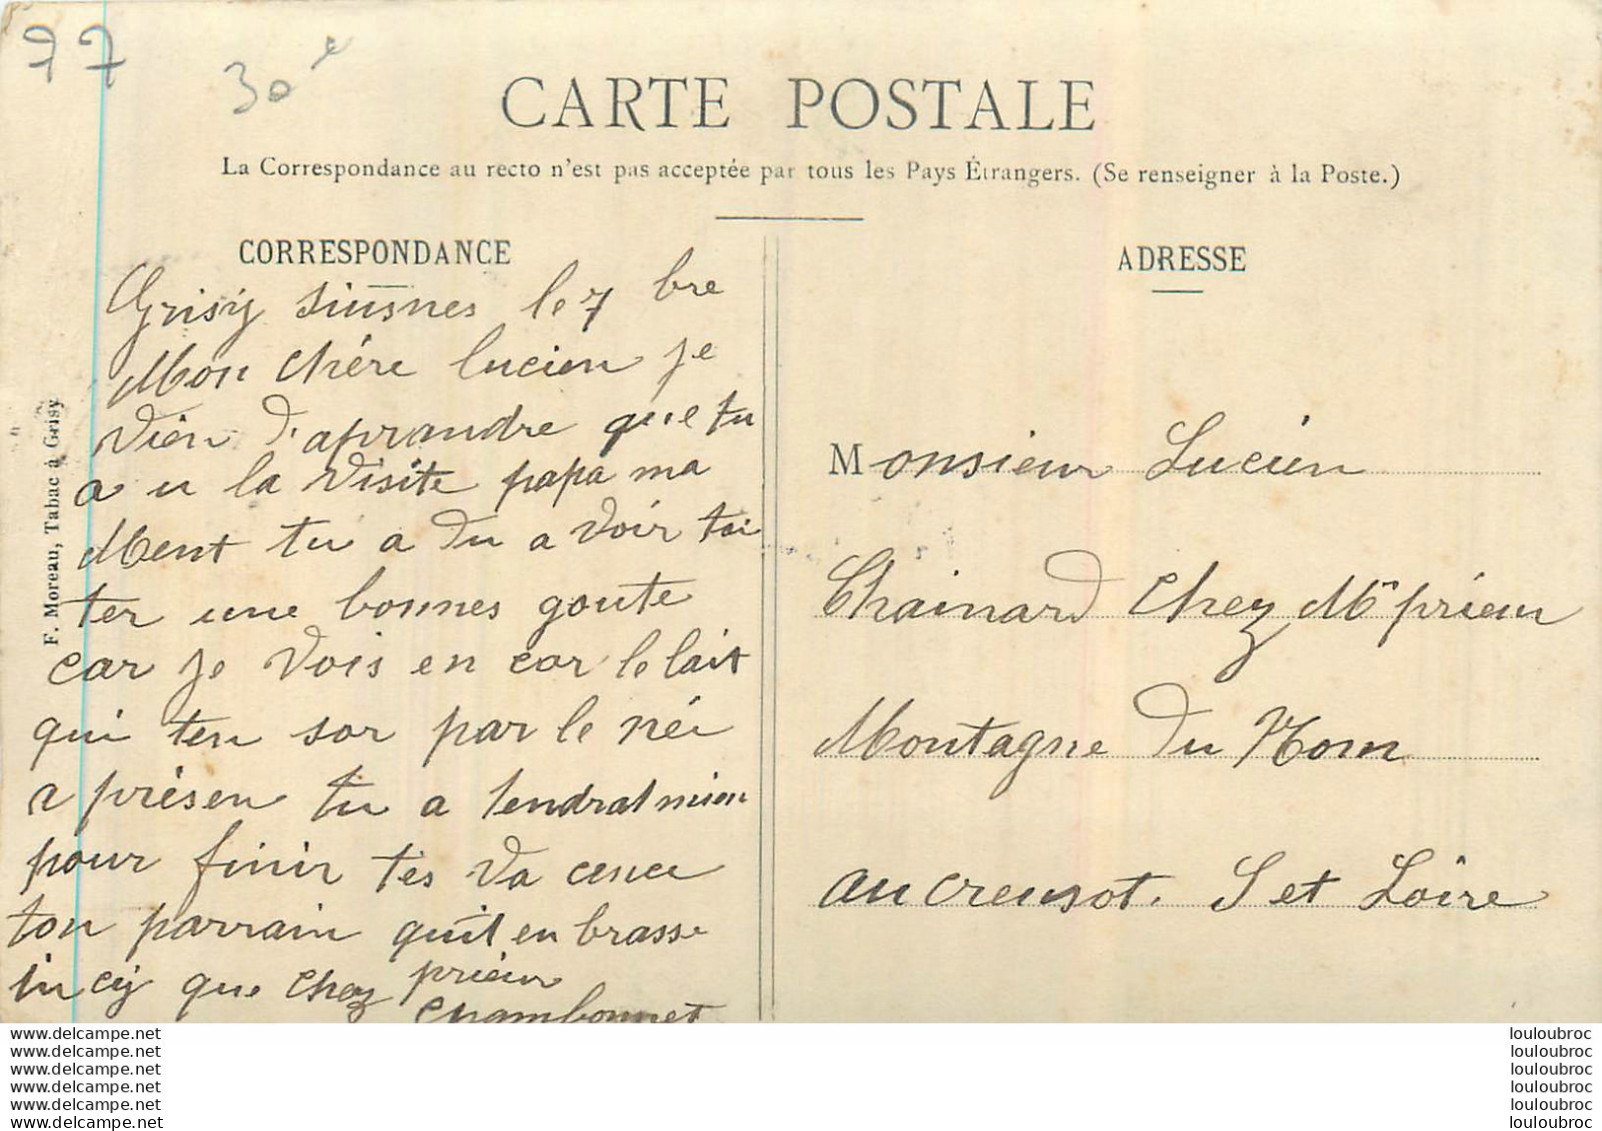 77
30€
CARTE POSTALE
La Correspondance au recto n'est pas acceptée par tous les Pays Étrangers. (Se renseigner à la Poste.)
CORRESPONDANCE
Grisy Suisnes le 7 bre
Mon chére lucien je
vien d'aprandre que tu
a u la visite papa ma
Ment tu a du a voir tai
ter une bonnes goute
car je vois en cor le lait
qui ten sor par le néi
présen tu a tendral mien
pour finir tes va cence
ton parrain quil en brasse
in cij que chez prieur
chambonnet
F. Moreau, Tabac à Grisy
ADRESSE
Monsieur Lucien
Chainard chez Mr prieur
Montagne du
au creusot. S et Loire
www.delcampe.net
www.delcampe.net
www.delcampe.net
www.delcampe.net
www.delcampe.net
www.delcampe.net
louloubroc
louloubroc
louloubroc
louloubroc
louloubroc
louloubroc